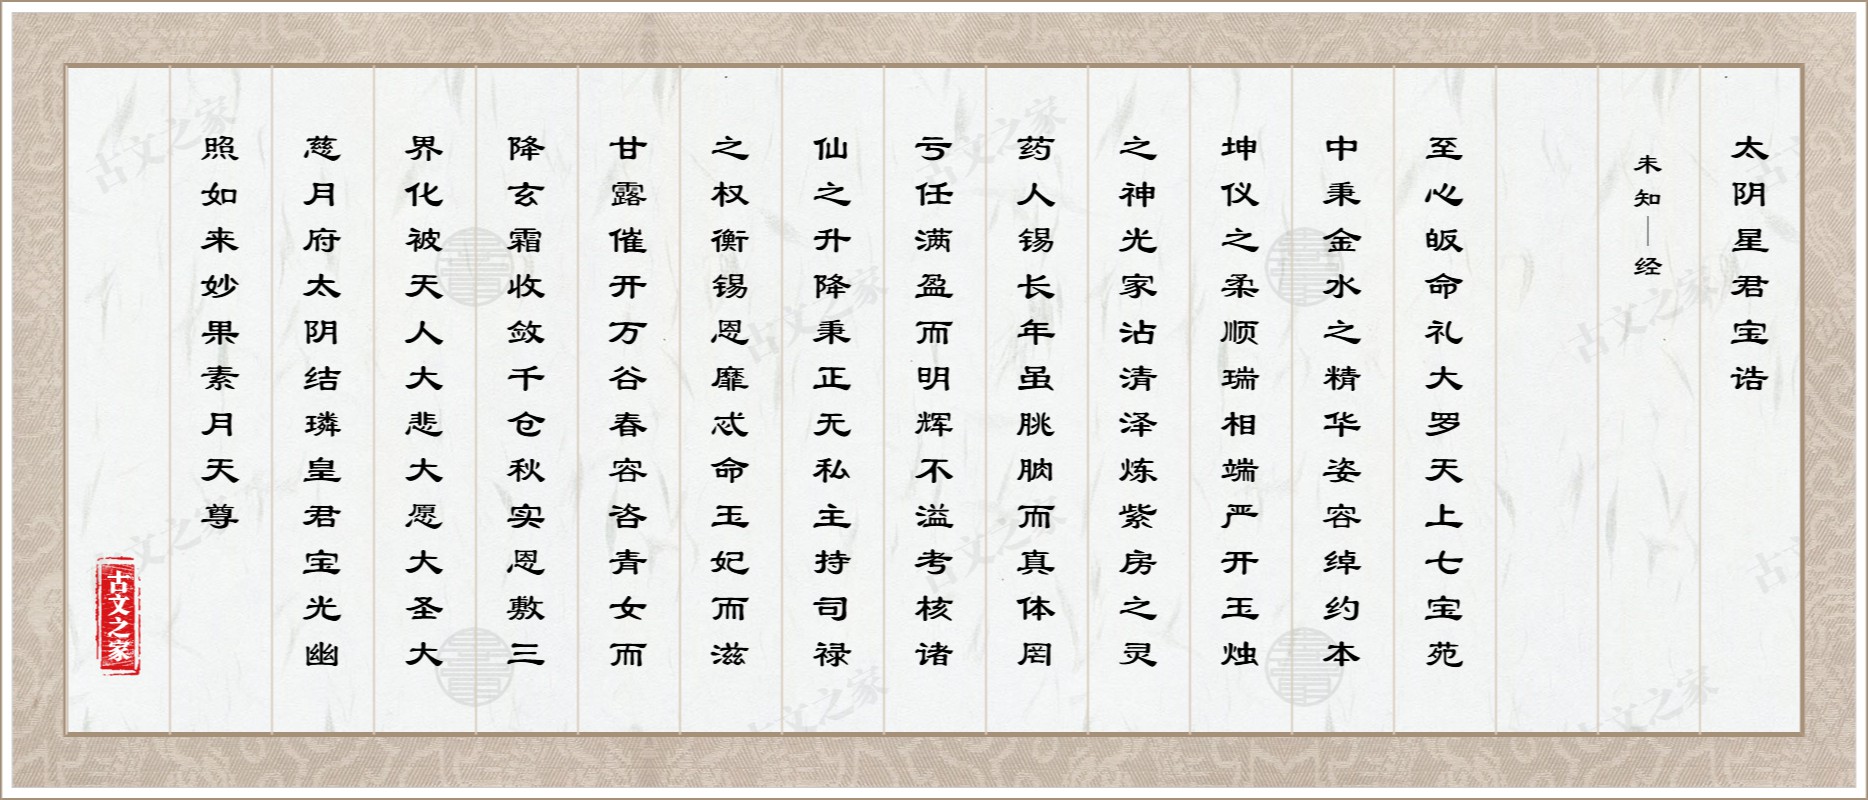 太阴星君宝诰
未知—经
至心皈命礼大罗天上七宝苑
中秉金水之精华姿容绰约本
坤仪之柔顺瑞相端严开玉烛
之神光家沾清泽炼紫房之灵
药人锡长年虽朓朒而真体罔
亏任满盈而明辉不溢考核诸
仙之升降秉正无私主持司禄
之权衡锡恩靡忒命玉妃而滋
甘露催开万谷春容咨青女而
降玄霜收敛千仓秋实恩敷三
界化被天人大悲大愿大圣大
慈月府太阴结璘皇君宝光幽
照如来妙果素月天尊
古文之家